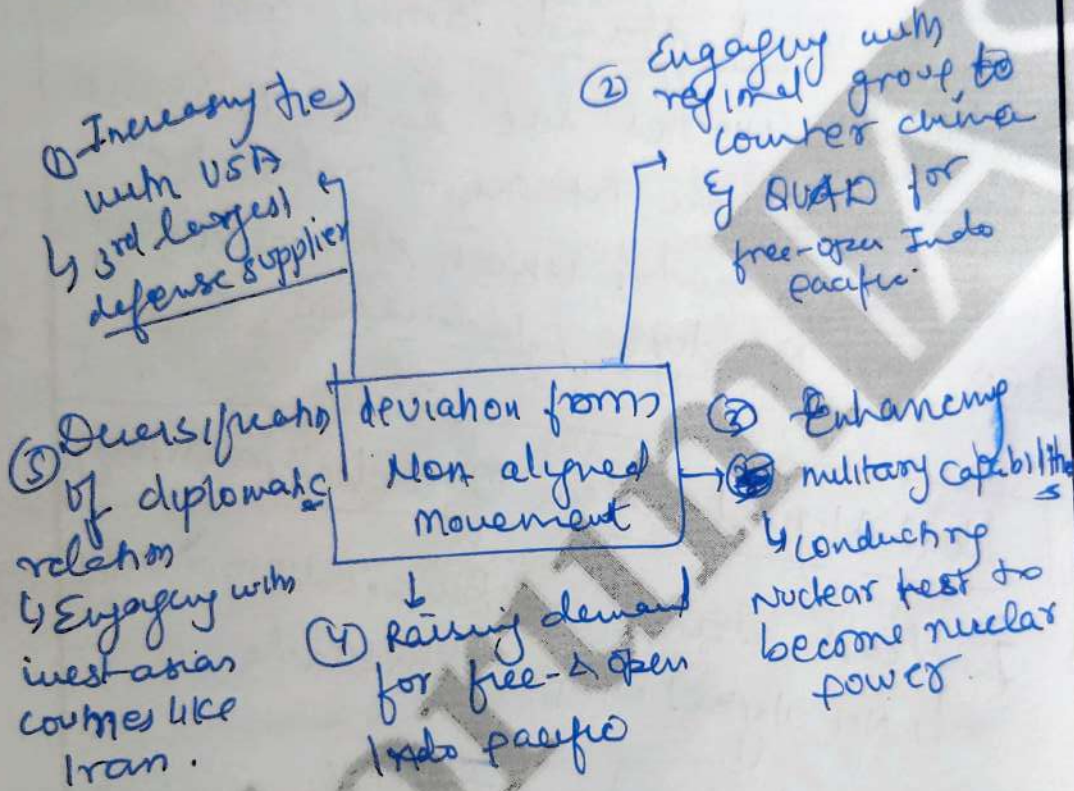 ① Increasing ties
with USA
↳ 3rd largest
defense supplier
② Engaging with
regional group to
counter china
eg QUAD for
free-open Indo
pacific.
deviation from
Non aligned
Movement
③ Enhancing
military capabilities
↳ conducting
Nuclear test to
become nuclear
power
④ Raising demand
for free-& open
Indo pacific
⑤ Diversification
of diplomatic
relation
↳ Engaging with
west-asian
countries like
Iran.